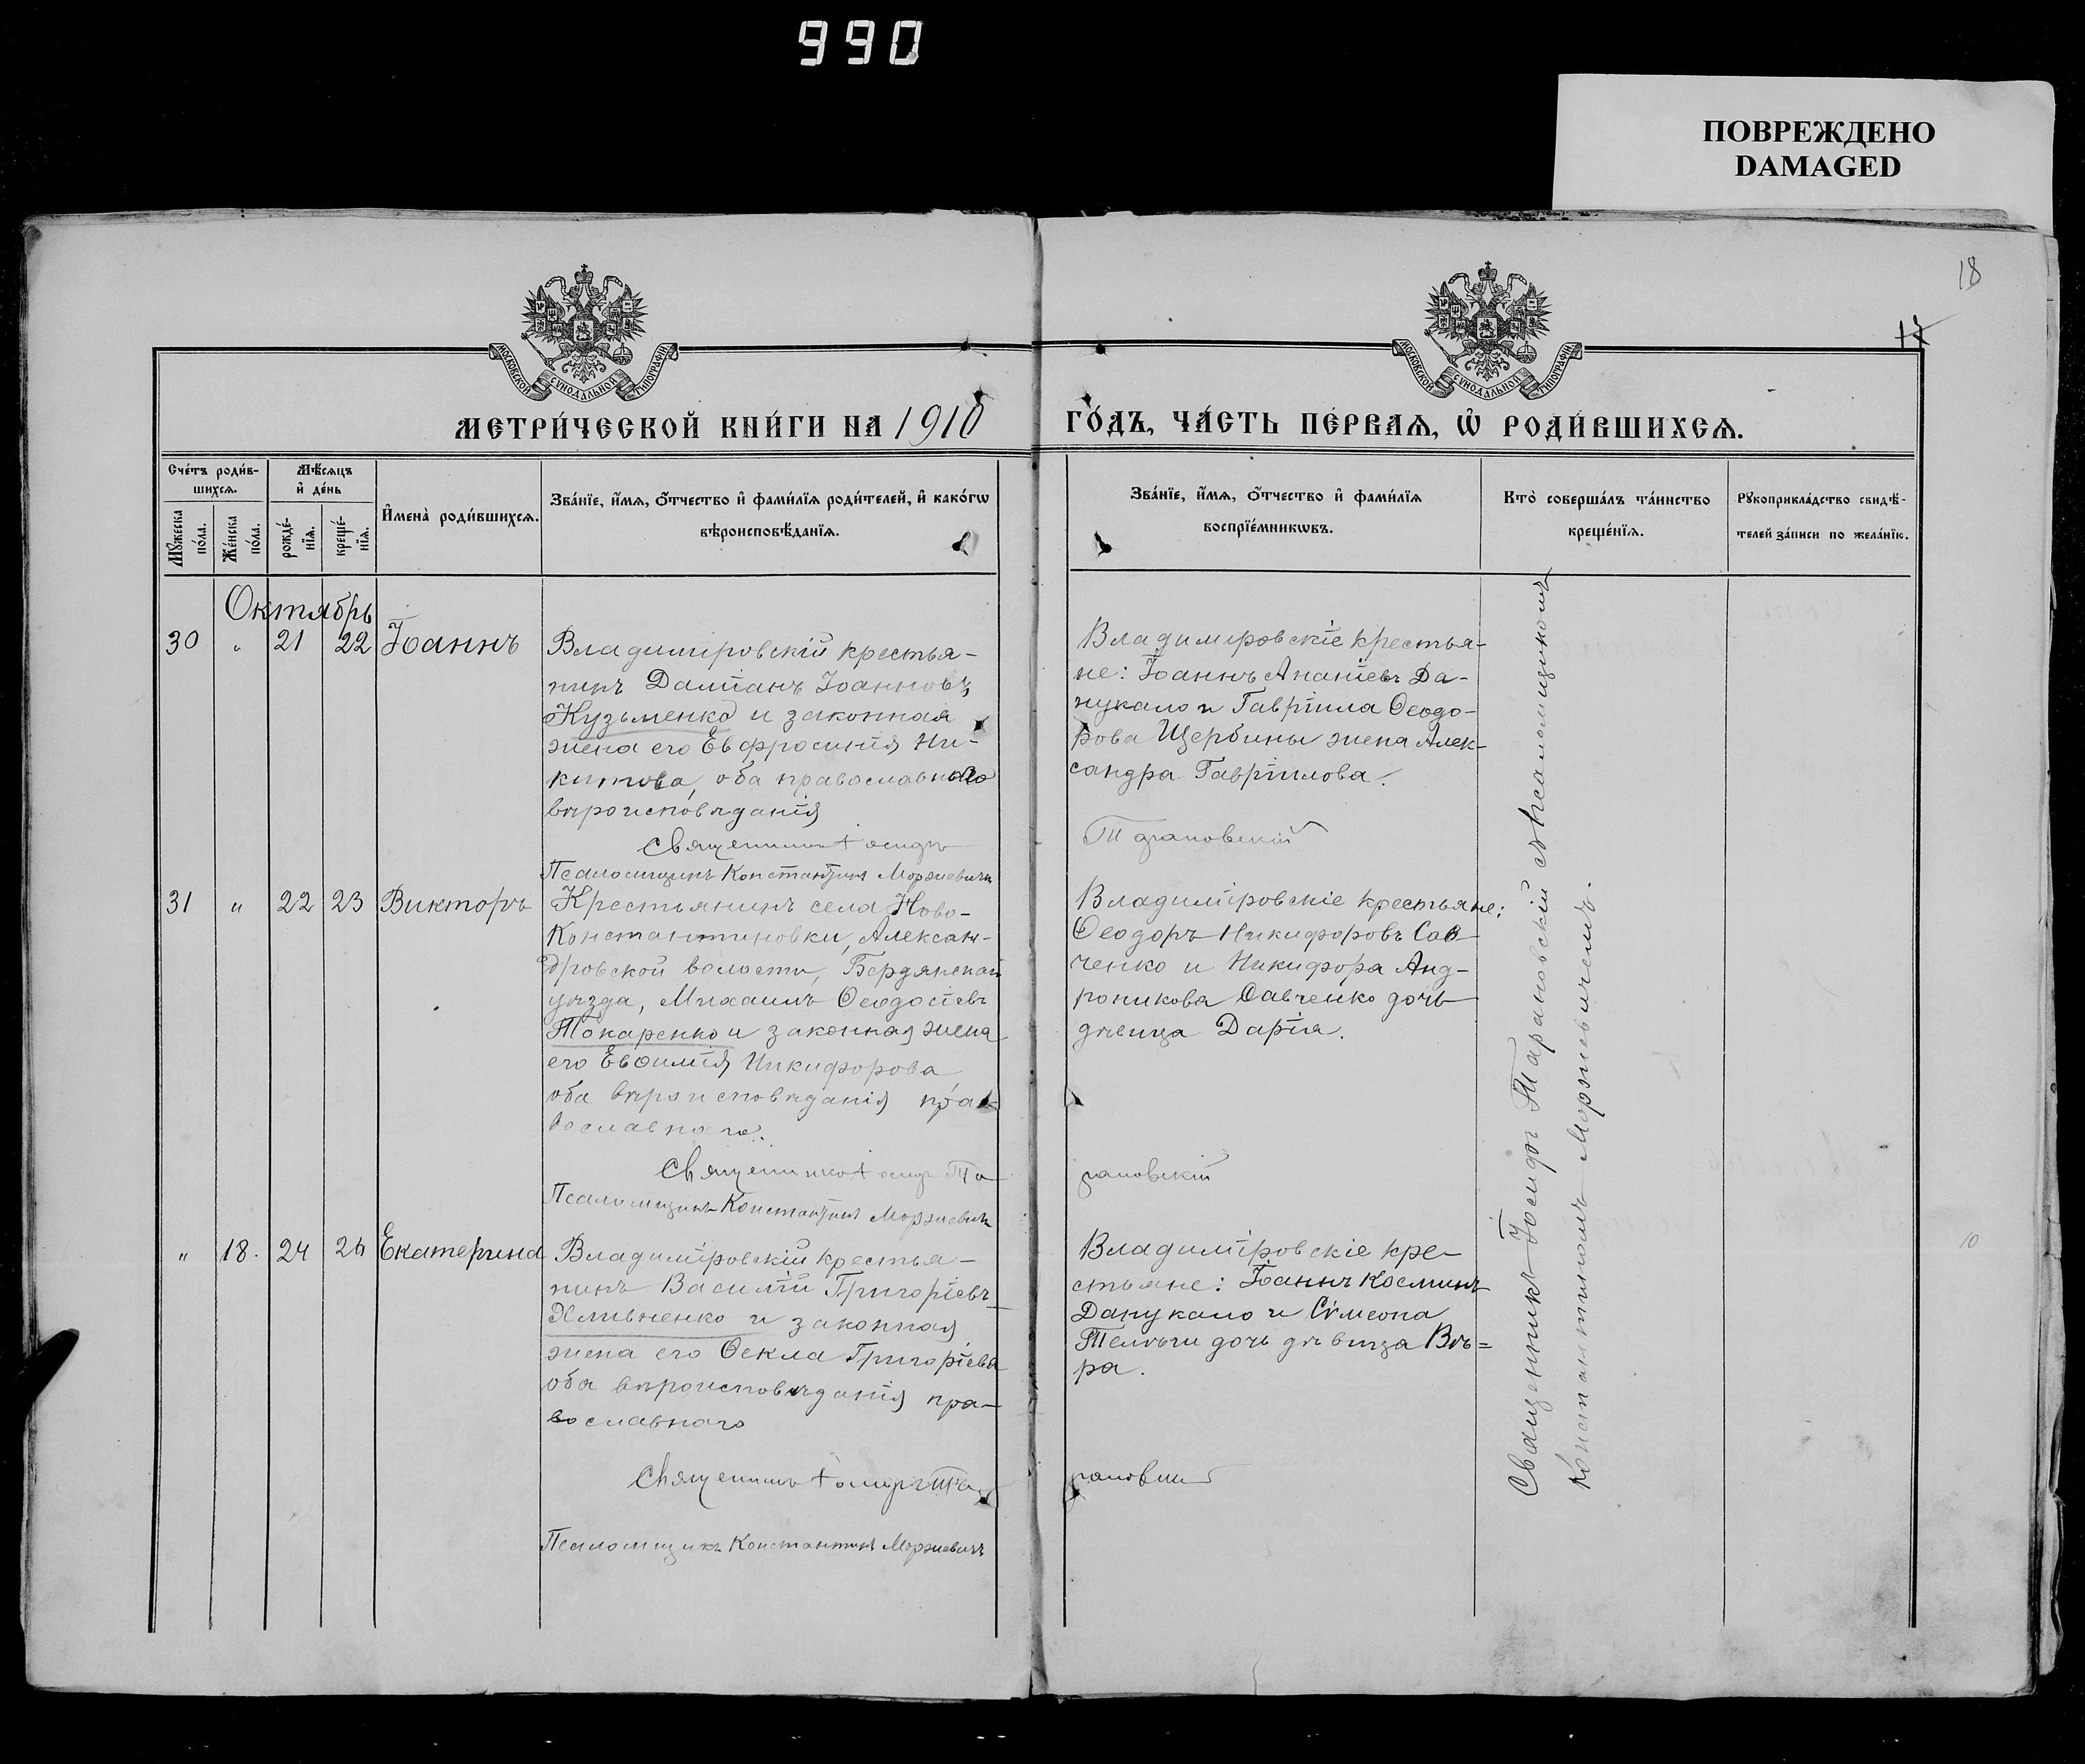 990
ПОВРЕЖДЕНО
DAMAGED
18
17
МОСКОВСКОЙ СѴНОДАЛЬНОЙ ТИПОГРАФІИ
МОСКОВСКОЙ СѴНОДАЛЬНОЙ ТИПОГРАФІИ
МЕТРИ́ЧЕСКОЙ КНИ́ГИ НА 1910
ГО́ДЪ, ЧА́СТЬ ПЕ́РВАѦ, Ѡ҆ РОДИ́ВШИХСѦ.
Сче́тъ роди́в-
шихсѧ.
Мꙋ́жеска
по́ла.
Же́нска
по́ла.
Мѣ́сѧцъ
и҆ де́нь
рожде́-
нїѧ.
креще́-
нїѧ.
И҆мена̀ роди́вшихсѧ.
Зва́нїе, и҆́мѧ, ѻ҆́тчество и҆ фами́лїѧ роди́телей, и҆ како́гѡ
вѣроисповѣ́данїѧ.
Зва́нїе, и҆́мѧ, ѻ҆́тчество и҆ фами́лїѧ
воспрїе́мникѡвъ.
Кто̀ соверша́лъ та́инство
креще́нїѧ.
Рꙋкоприкла́дство свидѣ́-
телей за́писи по жела́нїю.
Октябрь
30 „ 21 22 Іоаннъ
Владимировскій крестья-
нинъ Даміанъ Іоанновъ
Кузьменко и законная
жена его Евфросинія Ни-
китова, оба православнаго
вѣроисповѣданія
Священникъ Іосифъ
Псаломщикъ Константинъ Моржевичъ
Владимировскіе крестья-
не: Іоаннъ Ананіевъ Да-
нукало и Гавріила Ѳеодо-
рова Щербины жена Алек-
сандра Гавріилова.
Тарановскій
31 „ 22 23 Викторъ
Крестьянинъ села Ново-
Константиновки, Алексан-
дровской волости, Бердянскаго
уѣзда, Михаилъ Ѳеодосіевъ
Токаренко и законная жена
его Евѳимія Никифорова
оба вѣроисповѣданія пра-
вославнаго.
Священникъ Іосифъ Та
Псаломщикъ Константинъ Моржевичъ
Владиміровскіе крестьяне:
Ѳеодоръ Никифоровъ Сав-
ченко и Никифора Анд-
роникова Савченко дочь
дѣвица Дарія.
рановскій
„ 18. 24 26 Екатерина
Владиміровскій крестья-
нинъ Василій Григоріевъ
Хливненко и законная
жена его Ѳекла Григоріева
оба вѣроисповѣданія пра-
вославнаго
Священникъ Іосифъ Та
Псаломщикъ Константинъ Моржевичъ
Владиміровскіе кре-
стьяне: Іоаннъ Косминъ
Данукало и Сѵмеона
дочь дѣвица Вѣ=
ра.
рановскій
Священникъ Іосифъ Тарановскій съ псаломщикомъ
Константиномъ Моржевичемъ.
10